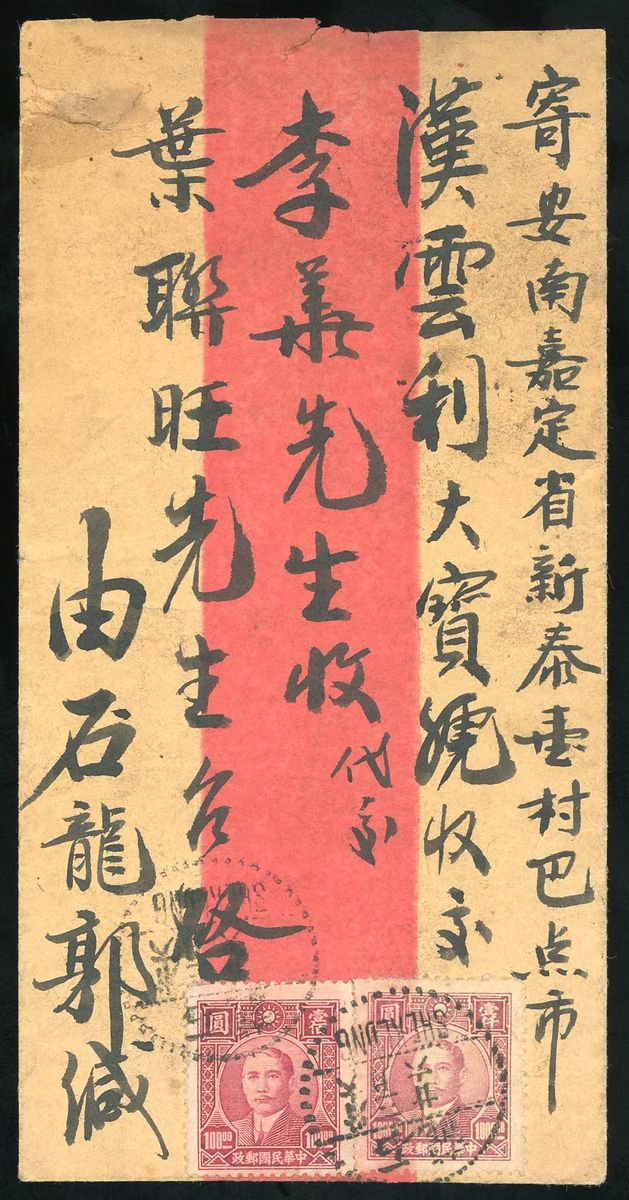 寄安南嘉定省新泰壹村巴点市
漢雲利大寶號收交
李華先生收代交
葉聯旺先生台啓
由石龍郭緘
壹佰圓
100.00 100.00
中華民國郵政
圓
100.00
中華民國郵政
SHEKLUNG